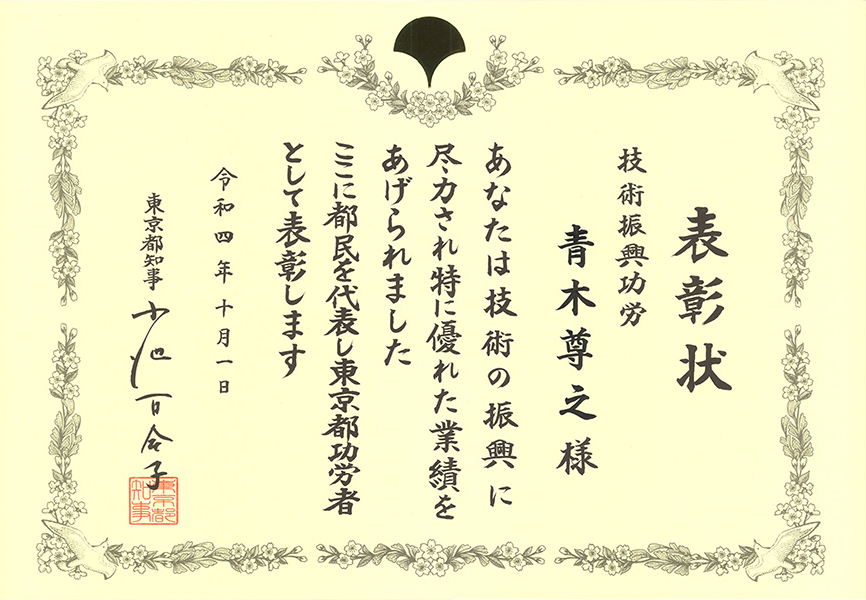 表彰状
技術振興功労
青木尊之様
あなたは技術の振興に
尽力され特に優れた業績を
あげられました
ここに都民を代表し東京都功労者
として表彰します
令和四年十月一日
東京都知事 小池百合子
東京都知事